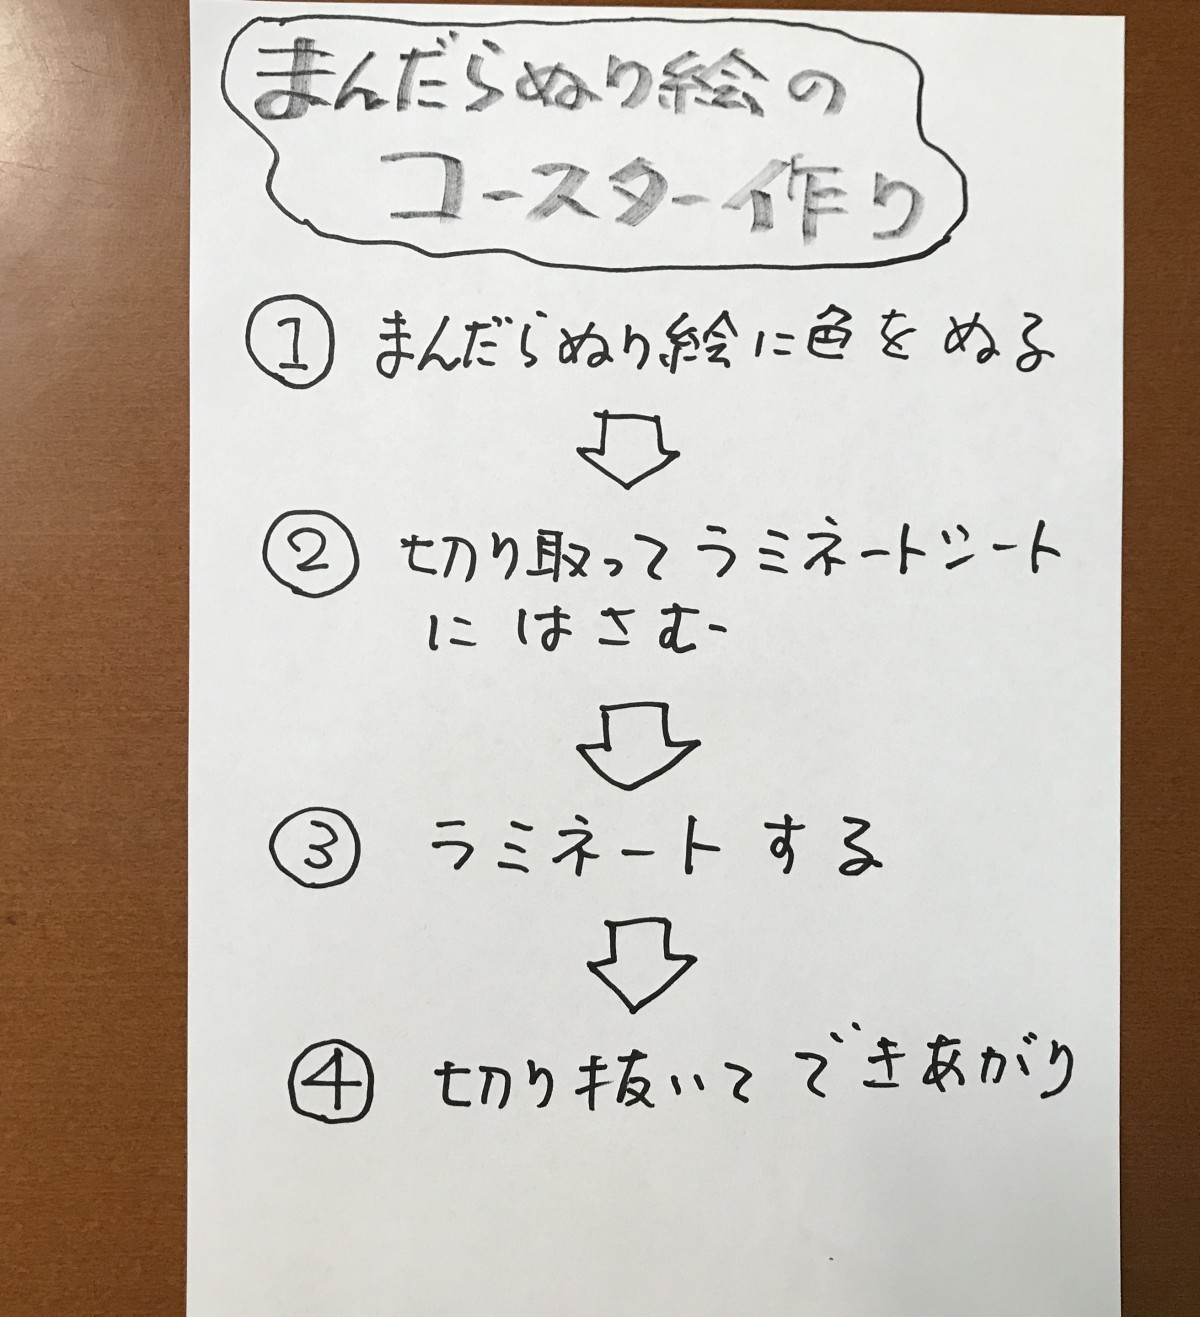 まんだらぬり絵の
コースター作り
① まんだらぬり絵に色をぬる
② 切り取ってラミネートシート
にはさむ
③ ラミネートする
④ 切り抜いてできあがり